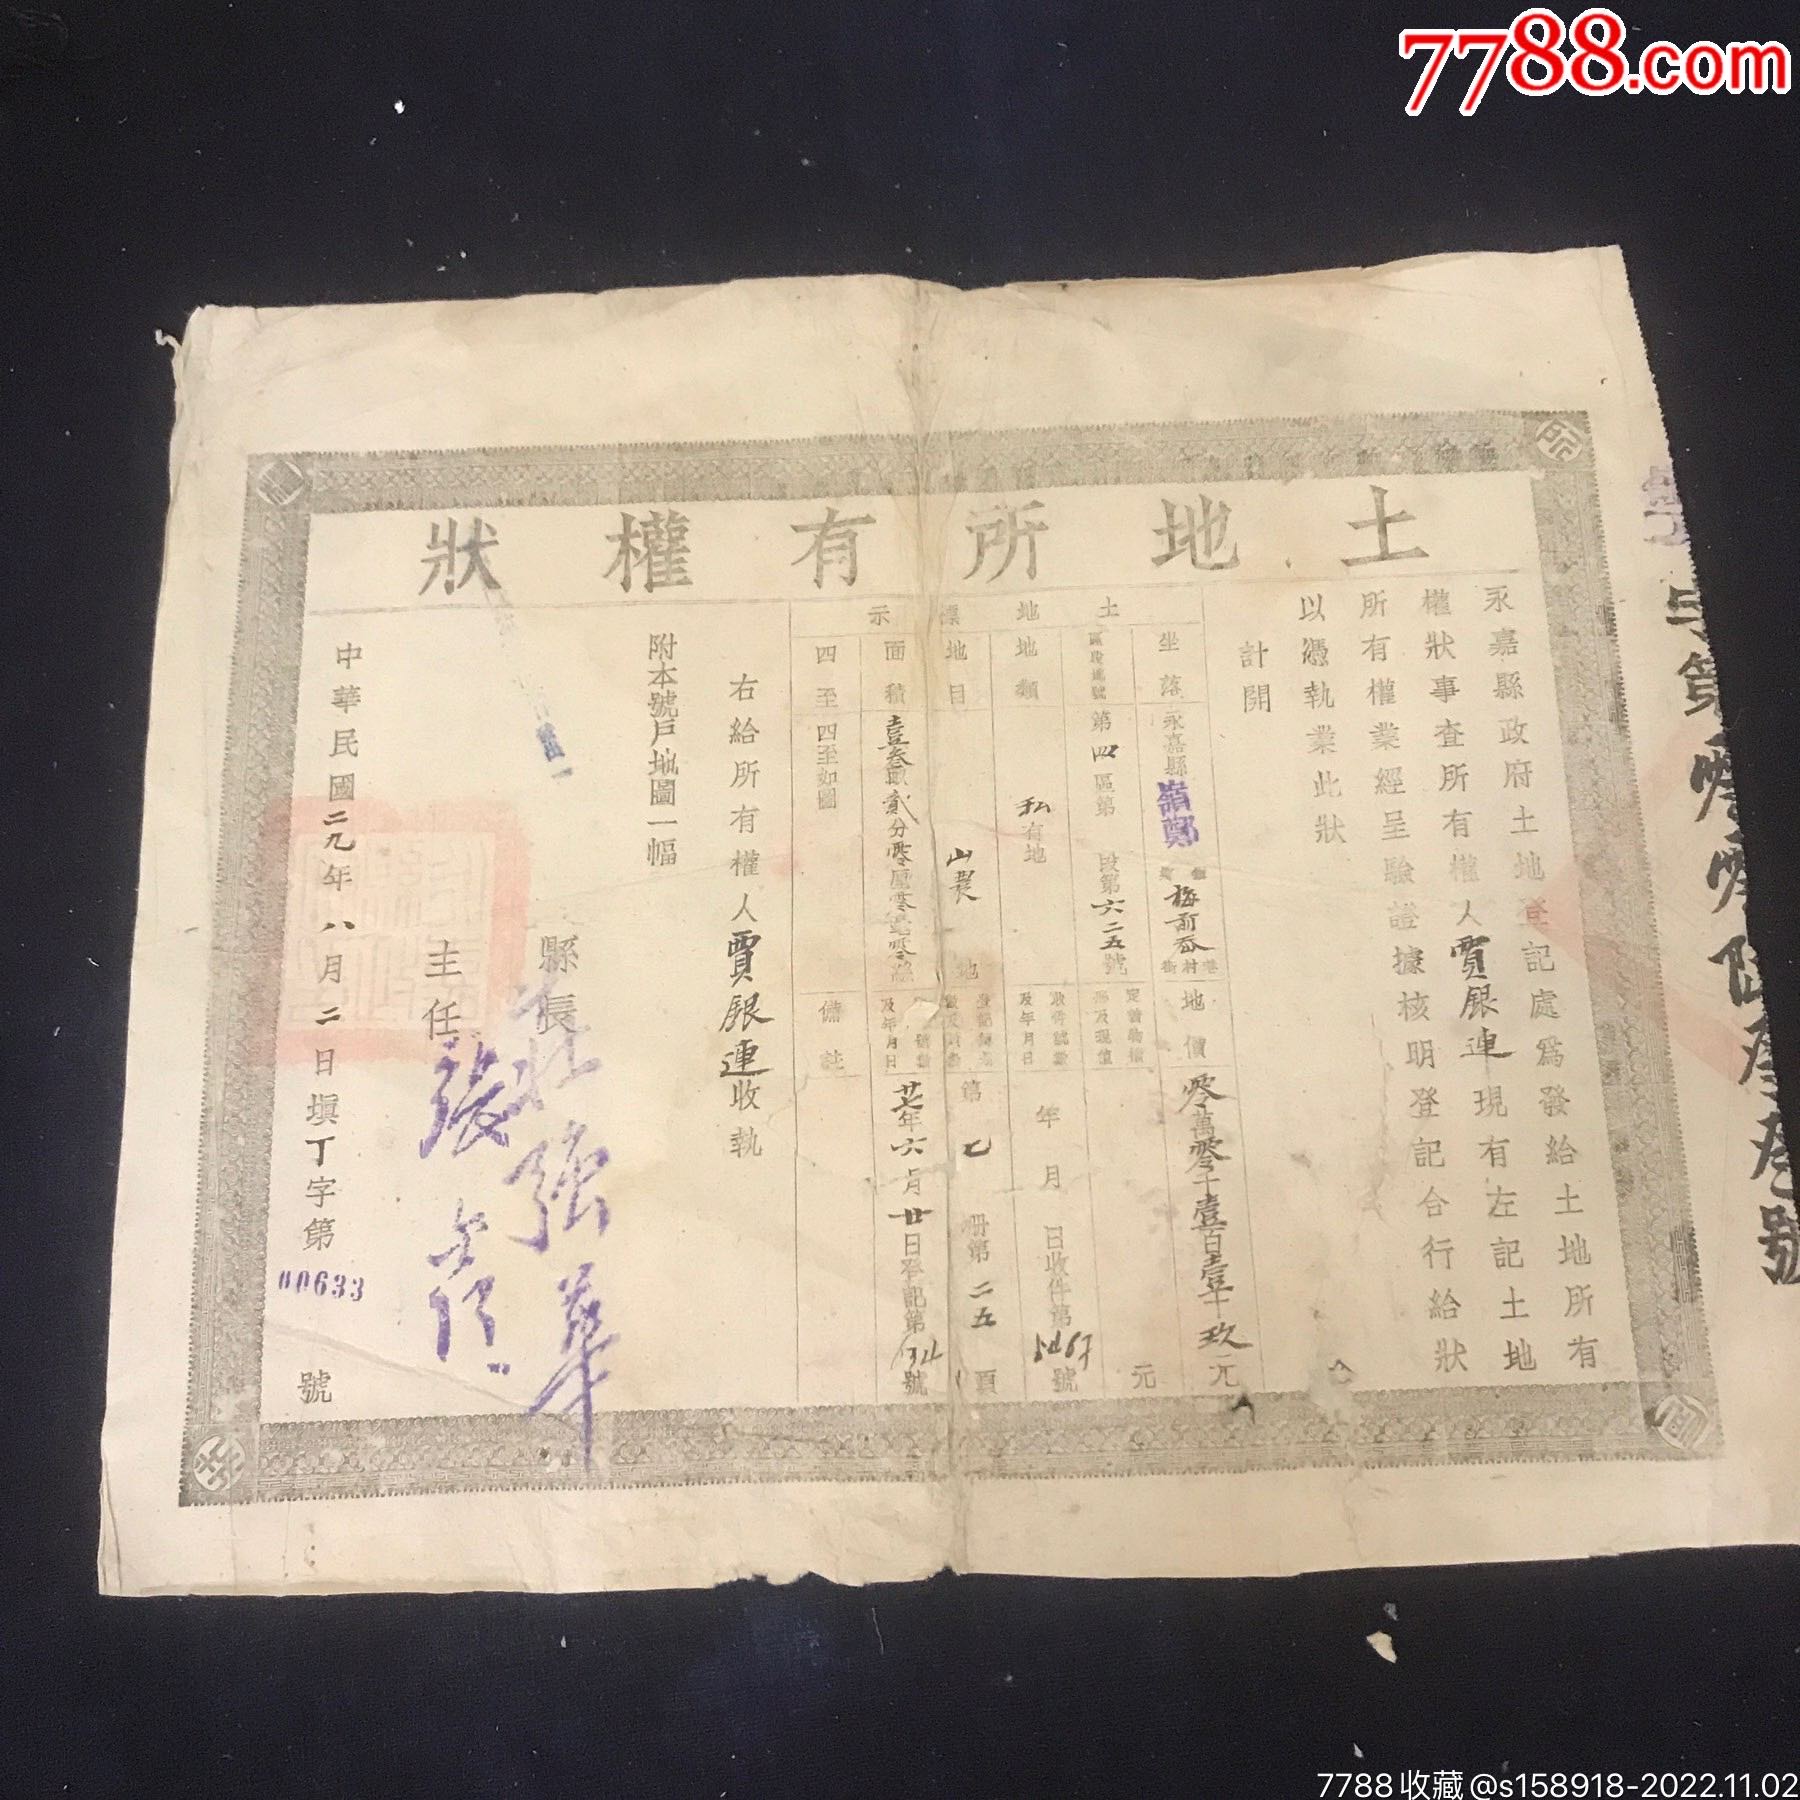 7788.com
土地所有權狀
永嘉縣政府土地登記處爲發給土地所有
權狀事查所有權人賈銀連現有左記土地
所有權業經呈驗證據核明登記合行給狀
以憑執業此狀
計開
土地標示
坐落 永嘉縣 梅 街村巷
地價 零萬零千壹百壹十玖元
區段地號 第四區第 段第六二五號
元
地類 私有地
收件號數及年月日 年 月 日收件第 號
地目 山 地
第乙冊第二五頁
面積 壹叁畝貳分零厘零毫零絲
年六月廿日登記第 號
四至 四至如圖
備註
右給所有權人賈銀連收執
附本號戶地圖一幅
縣長
主任 張
中華民國二九年八月二日填丁字第00633號
字第零零陸叁叁號
7788收藏@s158918-2022.11.02